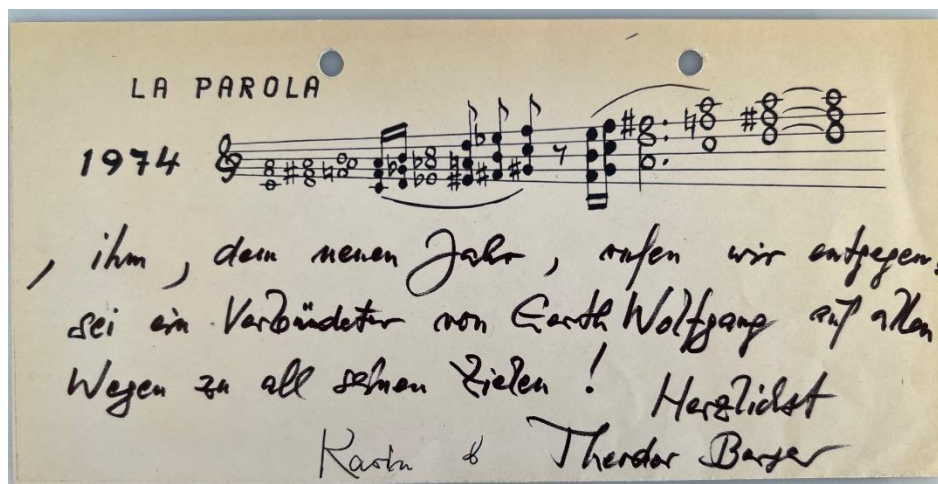 LA PAROLA
1974
, ihm , dem neuen Jahr , rufen wir entgegen:
sei ein Verbündeter von Gerth Wolfgang auf allen
Wegen zu all seinen Zielen !
Herzlichst
Karin & Theodor Berger